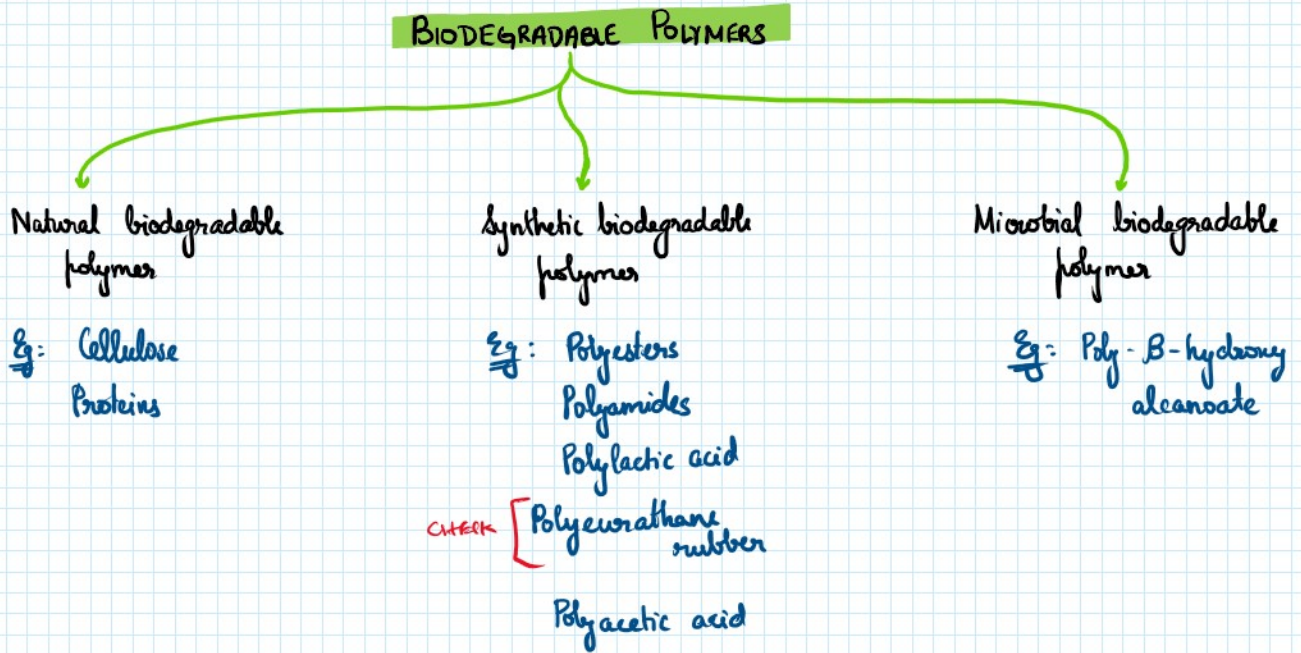 BIODEGRADABLE POLYMERS
Natural biodegradable
polymer
Eg: Cellulose
Proteins
Synthetic biodegradable
polymer
Eg: Polyesters
Polyamides
Polylactic acid
CHECK
Polyeurathane
rubber
Polyacetic acid
Microbial biodegradable
polymer
Eg: Poly-β-hydroxy
alcanoate